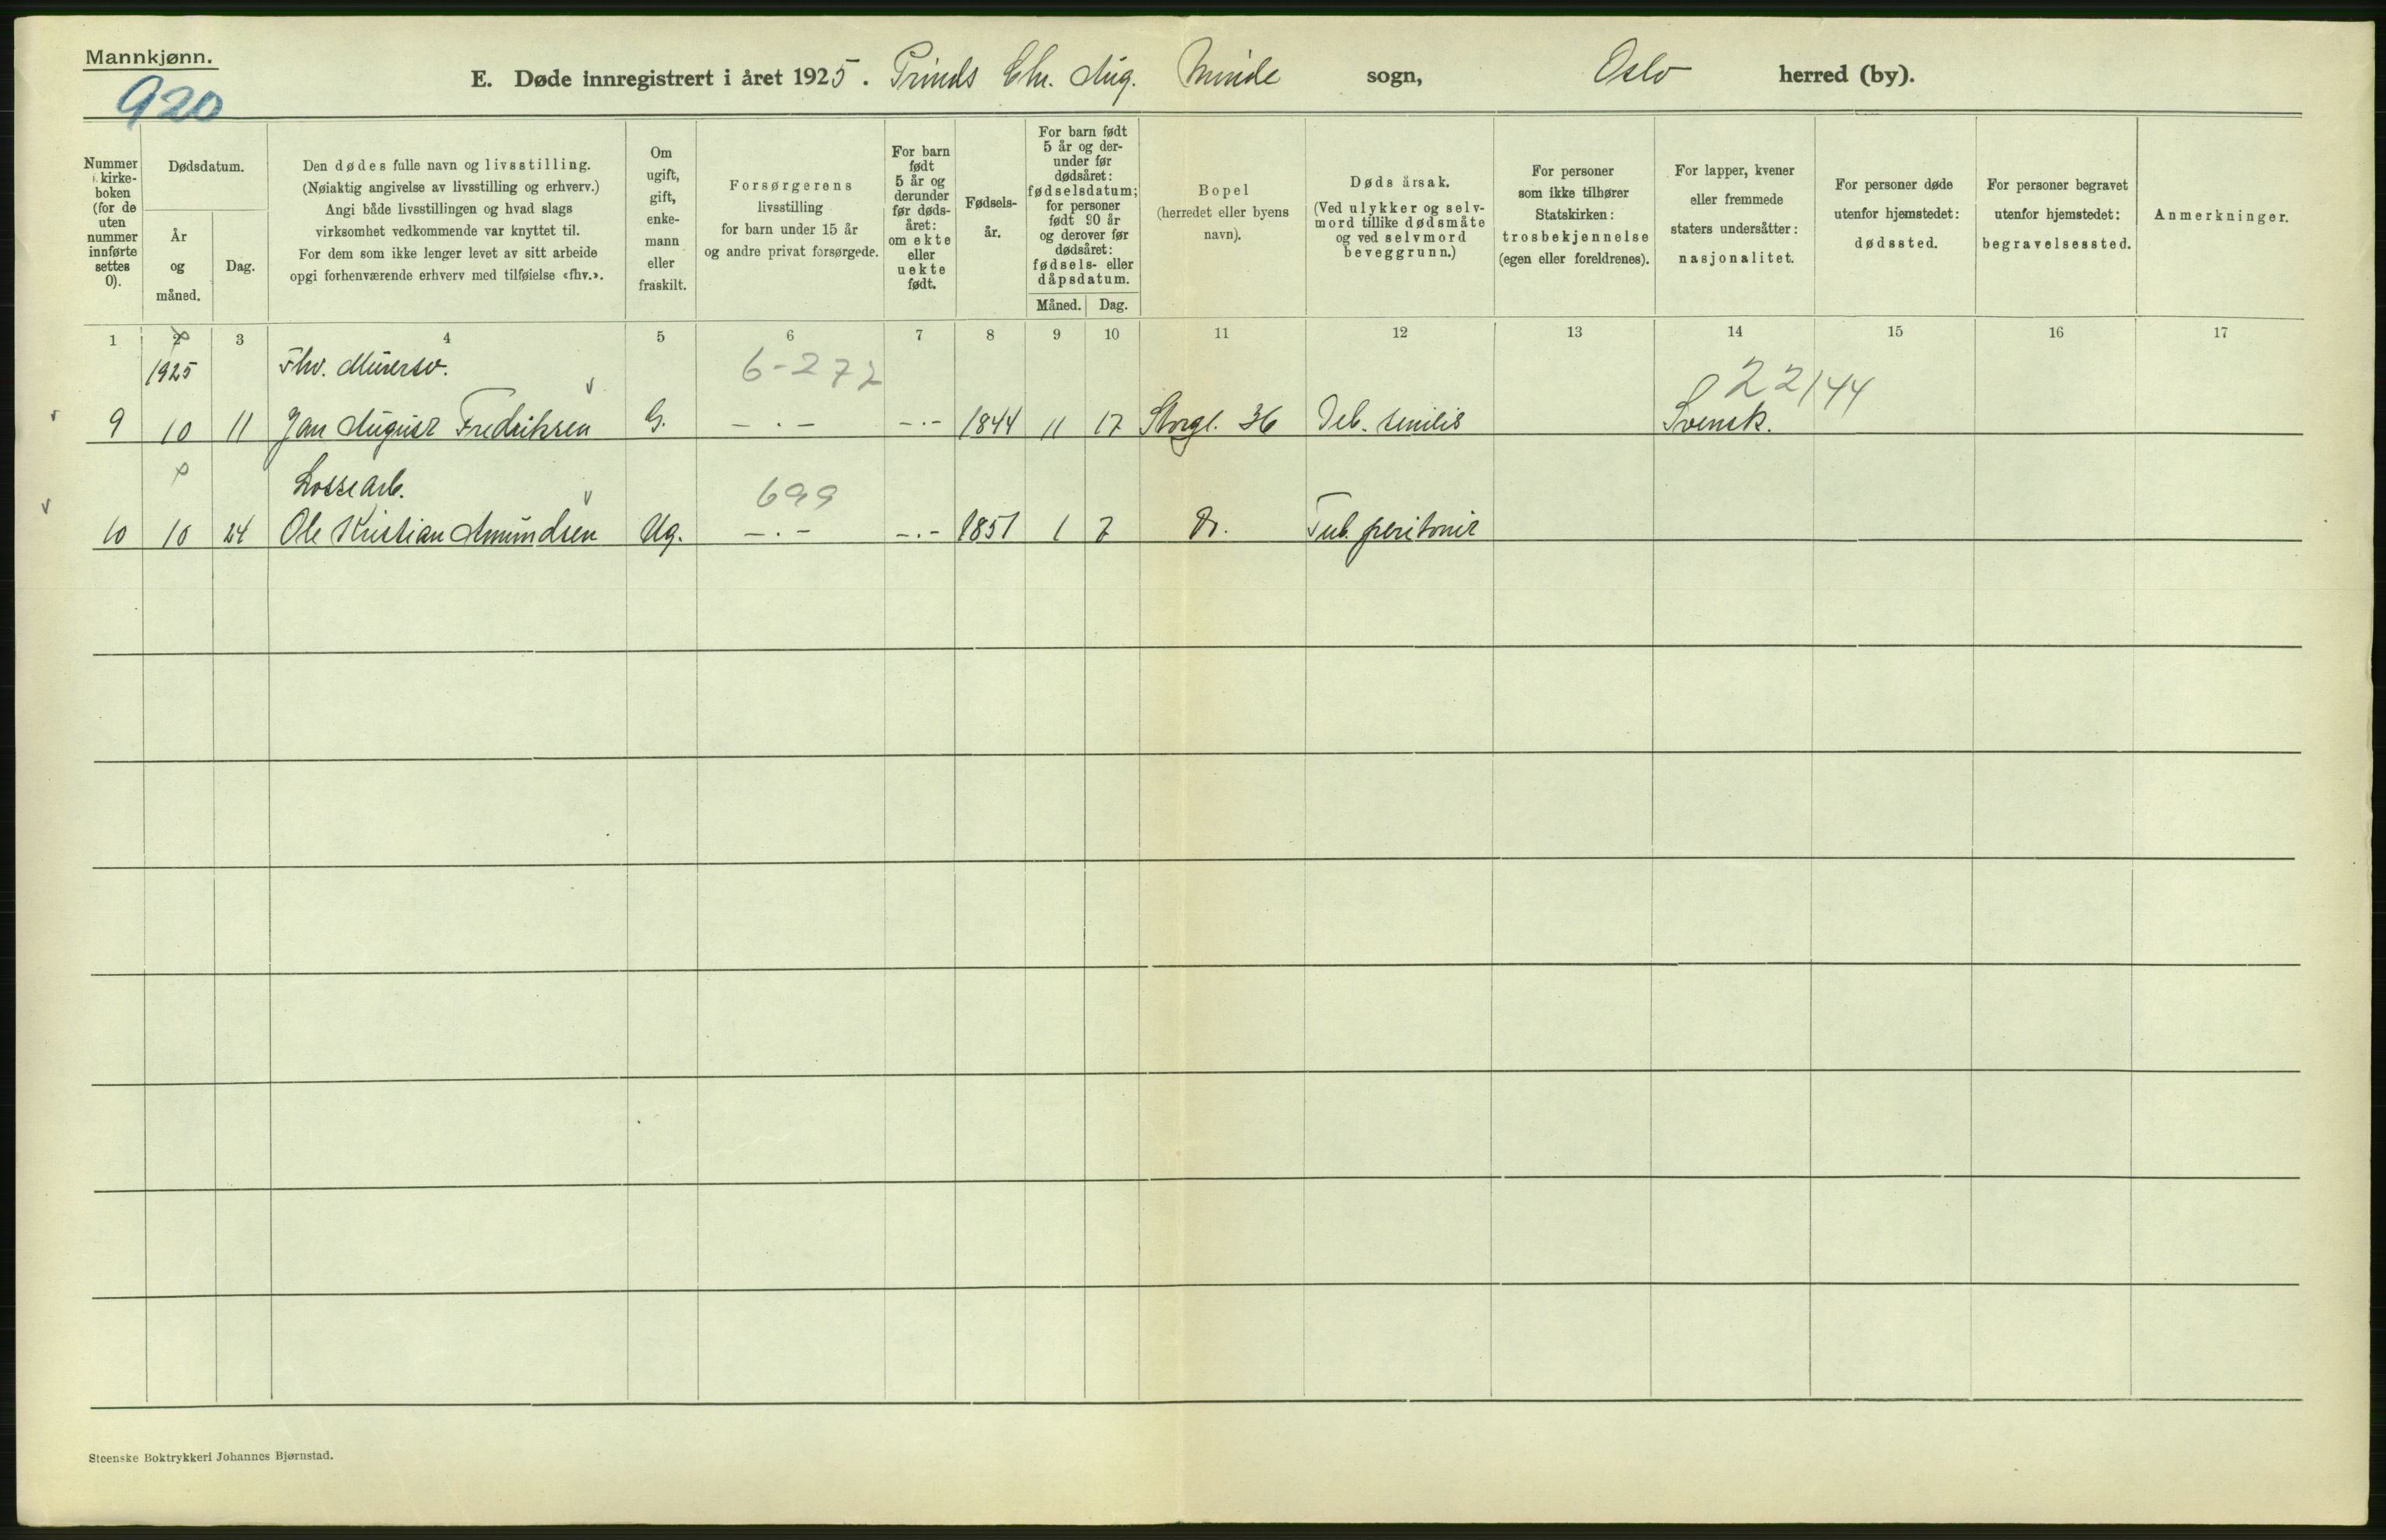 Mannkjønn.
920
E. Døde innregistrert i året 1925. Prinds Chr. Aug. Minde sogn, Oslo herred (by).
Nummer i kirke-boken (for de uten nummer innførte settes 0).
Dødsdatum.
År og måned.
Dag.
Den dødes fulle navn og livsstilling.
(Nøiaktig angivelse av livsstilling og erhverv.)
Angi både livsstillingen og hvad slags
virksomhet vedkommende var knyttet til.
For dem som ikke lenger levet av sitt arbeide
opgi forhenværende erhverv med tilføielse «fhv.».
Om ugift, gift, enke-mann eller fraskilt.
Forsørgerens
livsstilling
for barn under 15 år
og andre privat forsørgede.
For barn født 5 år og derunder før døds-året: om ekte eller uekte født.
Fødsels-år.
For barn født 5 år og der-under før dødsåret: fødselsdatum; for personer født 90 år og derover før dødsåret: fødsels- eller dåpsdatum.
Måned. Dag.
Bopel
(herredet eller byens
navn).
Dødsårsak.
(Ved ulykker og selv-
mord tillike dødsmåte
og ved selvmord
beveggrunn.)
For personer
som ikke tilhører
Statskirken:
trosbekjennelse
(egen eller foreldrenes).
For lapper, kvener
eller fremmede
staters undersåtter:
nasjonalitet.
For personer døde
utenfor hjemstedet:
dødssted.
For personer begravet
utenfor hjemstedet:
begravelsessted.
Anmerkninger.
1 2 3 4 5 6 7 8 9 10 11 12 13 14 15 16 17
1925 Fhv. Murersv. 6-272 22/44
9 10 11 Jan August Fredriksen G. -.- -.- 1844 11 17 Storgt. 36 Deb. senilis Svensk.
Lossearb. 699
10 10 24 Ole Kristian Amundsen Ug. -.- -.- 1851 1 7 Do. Tub. peritonit
Steenske Boktrykkeri Johannes Bjørnstad.